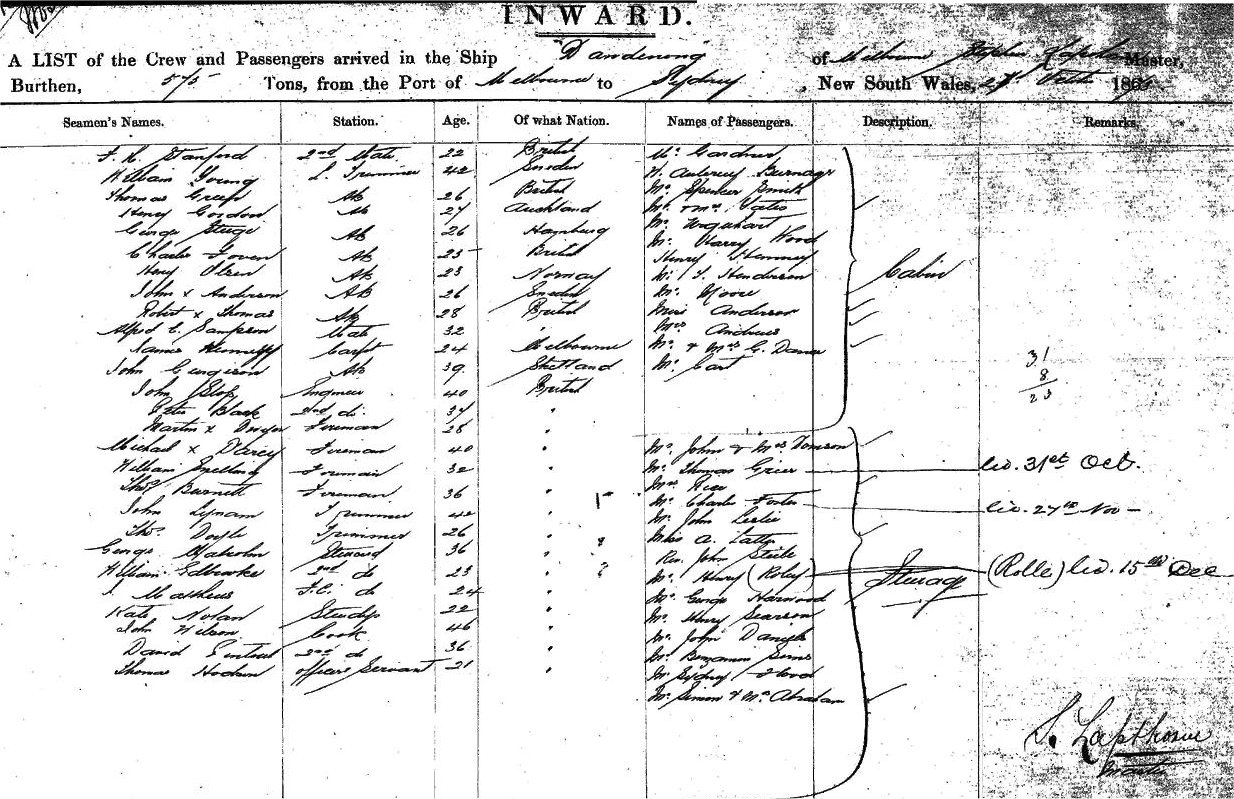 INWARD.
A LIST of the Crew and Passengers arrived in the Ship "Dandenong" of Melbourne Master,
Burthen, 575 Tons, from the Port of Melbourne to Sydney, New South Wales, 186
Seamen's Names. Station. Age. Of what Nation. Names of Passengers. Description. Remarks.
Stanford 2nd Mate 22 British Mr Gardner
William Young L. Trimmer 42 Sweden Aubrey
Thomas Green Ab 26 British Mr Spencer Smith
Henry Gordon Ab 27 Auckland Mr & Mrs Yates
George Ab 26 Hamburg Mr Urquhart
Charles Ab 25 British Mr Harry Wood
Henry Olsen Ab 23 Norway Henry
John x Anderson Ab 26 Sweden Mr Henderson Cabin
Robert x Thomas Ab 28 British Mr Moore
Alfred Sampson Mate 32 Miss Anderson
James Carpt 24 Melbourne Mrs Andrews
John Ab 39 Shetland Mr & Mrs G.
John Engineer 40 British Mr
Peter Black 2nd do 37 "
Martin x Fireman 28 "
31
8
23
Michael x Darcy Fireman 40 " Mr John & Mrs
William Snelling Fireman 32 " Mr Thomas Grier lib. 31st Oct.
Thos Burnett Fireman 36 " Mrs Rice
John Lynam Trimmer 42 " Mr Charles Foster lib. 27th Nov
Thos Doyle Trimmer 26 " Mr John Leslie
George Malcolm Steward 36 " Miss A.
William Edbrooke 2nd do 23 " Rev. John Steele
Mathews F.C. do 24 " Mr Henry (Roley) Steerage (Rolle) lib. 15th Dec
Kate Nolan Stewdss 22 " Mr George Harwood
John Wilson Cook 46 " Mr Henry Pearson
David 2nd do 36 " Mr John Daniels
Thomas Officers Servant 21 " Mr Benjamin Sims
Mr Sydney Hood
Mr Simon & Mrs Abraham
S. Lapthorne
Master